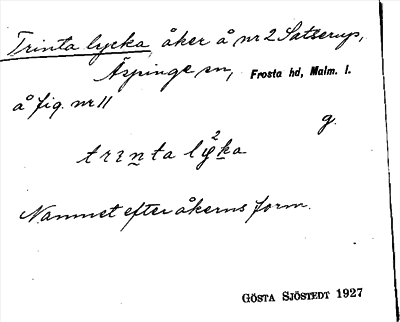 Trinta lycka, åker å nr 2 Satserup,
Äspinge sn, Frosta hd, Malm. l.
å fig. nr 11
g.
trinta lyka
Namnet efter åkerns form.
GÖSTA SJÖSTEDT 1927